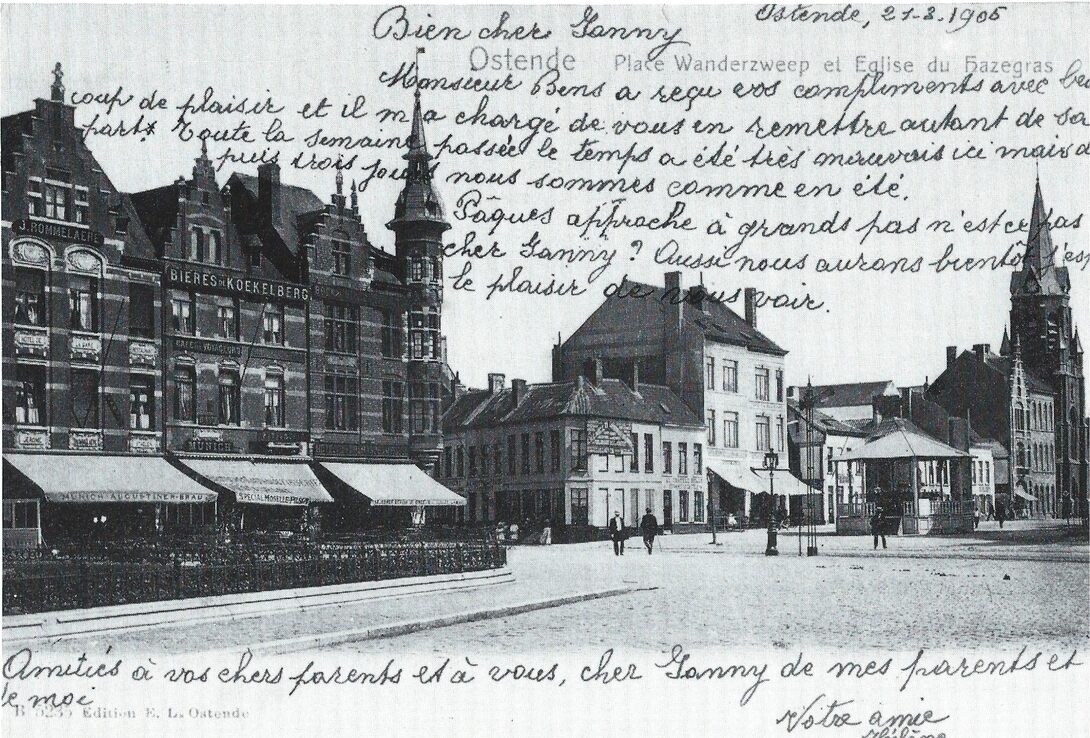 Ostende, 21-3.1905
Bien cher Ganny
Ostende Place Wanderzweep et Eglise du Hazegras
Monsieur Bens a reçu vos compliments avec be
coup de plaisir et il m'a chargé de vous en remettre autant de sa
part. Toute la semaine passée le temps a été très mauvais ici mais d
puis trois jours nous sommes comme en été.
Pâques approche à grands pas n'est ce pas
cher Ganny? Aussi nous aurons bientôt
le plaisir de vous voir.
J. ROMMELAERE
BIERES DE KOEKELBERG
MUNICH
MUNICH AUGUSTINER-BRAU
SPECIAL MOSELLE
Amitiés à vos chers parents et à vous, cher Ganny de mes parents et
de moi
Edition E. L. Ostende
Votre amie
Hélène